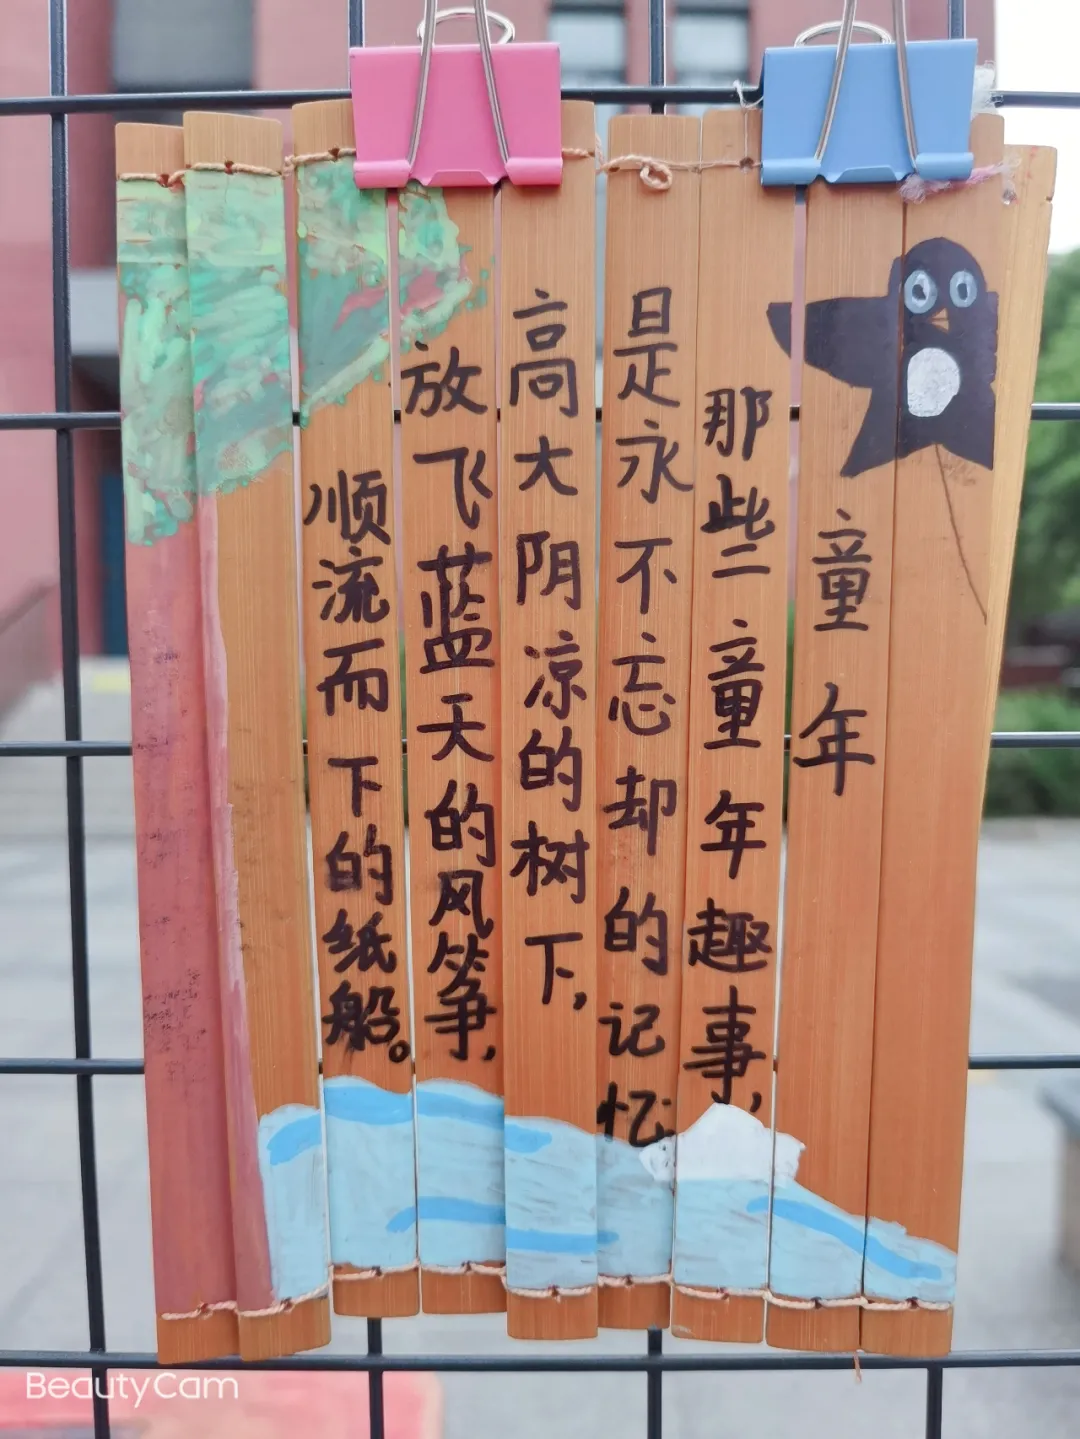 童年
那些童年趣事,
是永不忘却的记忆
高大阴凉的树下,
放飞蓝天的风筝,
顺流而下的纸船。
BeautyCam